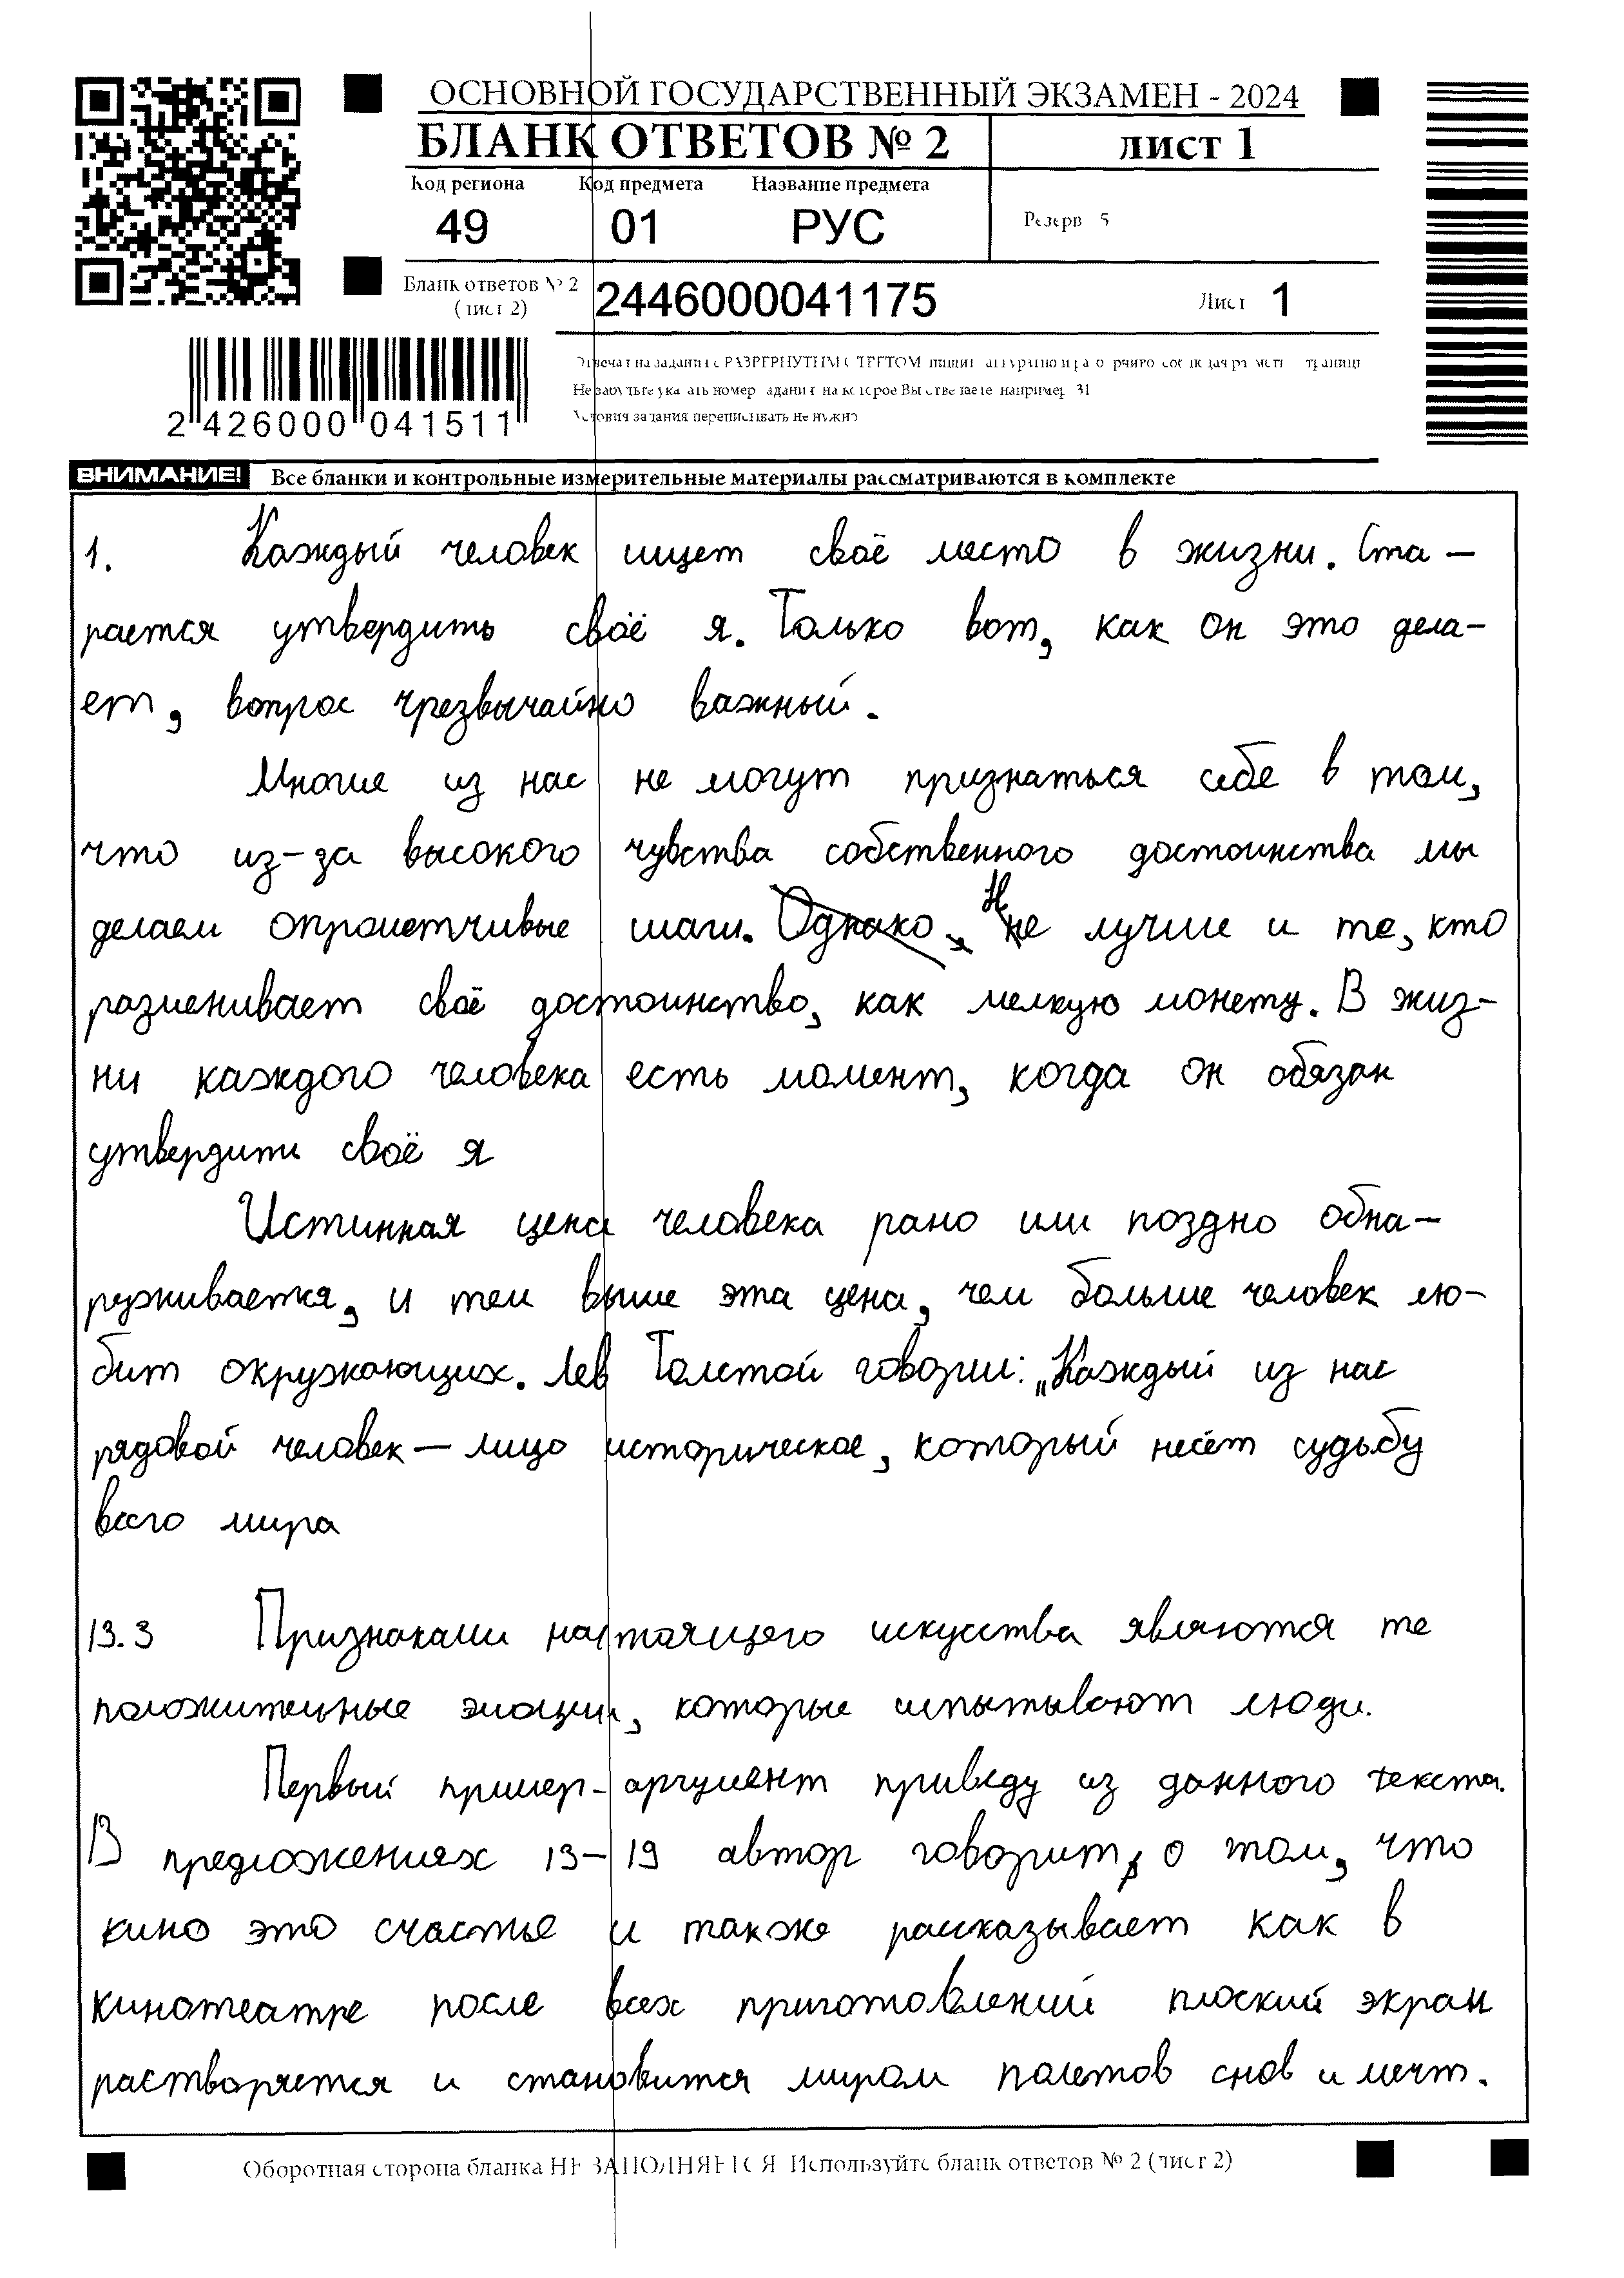 ОСНОВНОЙ ГОСУДАРСТВЕННЫЙ ЭКЗАМЕН - 2024
БЛАНК ОТВЕТОВ № 2
лист 1
Код региона Код предмета Название предмета
49 01 РУС
Резерв 5
Бланк ответов № 2
(лист 2)
2446000041175
Лист 1
Отвечая на задания с РАЗВЕРНУТЫМ ОТВЕТОМ, пишите аккуратно и разборчиво, соблюдая разметку страницы
Не забудьте указать номер задания, на которое Вы отвечаете, например, 31
Условия задания переписывать не нужно
2 426000 041511
ВНИМАНИЕ! Все бланки и контрольные измерительные материалы рассматриваются в комплекте
1. Каждый человек ищет своё место в жизни. Ста-
рается утвердить своё я. Только вот, как он это дела-
ет, вопрос чрезвычайно важный.
Многие из нас не могут признаться себе в том,
что из-за высокого чувства собственного достоинства мы
делаем опрометчивые шаги. Однако, Не лучше и те, кто
разменивает своё достоинство, как мелкую монету. В жиз-
ни каждого человека есть момент, когда он обязан
утвердити своё я
Истинная цена человека рано или поздно обна-
руживается, и тем выше эта цена, чем больше человек лю-
бит окружающих. Лев Толстой говорил: „Каждый из нас
рядовой человек — лицо историческое, который несёт судьбу
всего мира
13.3 Признаками настоящего искусства являются те
положительные эмоции, которые испытывают люди.
Первый пример-аргумент приведу из данного текста.
В предложениях 13-19 автор говорит о том, что
кино это счастье и также рассказывает как в
кинотеатре после всех приготовлений плоский экран
растворяется и становится миром полетов снов и мечт.
Оборотная сторона бланка НЕ ЗАПОЛНЯЕТСЯ. Используйте бланк ответов № 2 (лист 2)